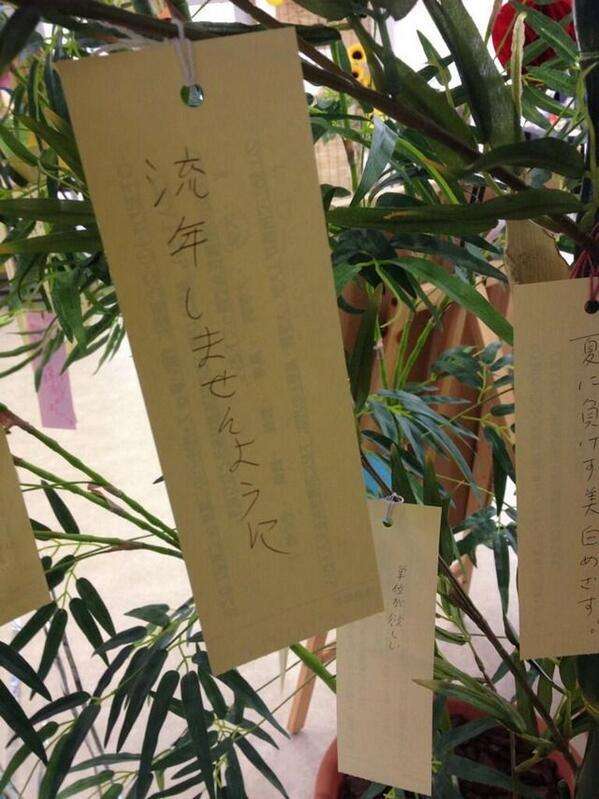 流年しませんように
夏に負けず美白めざす。
単位が欲しい